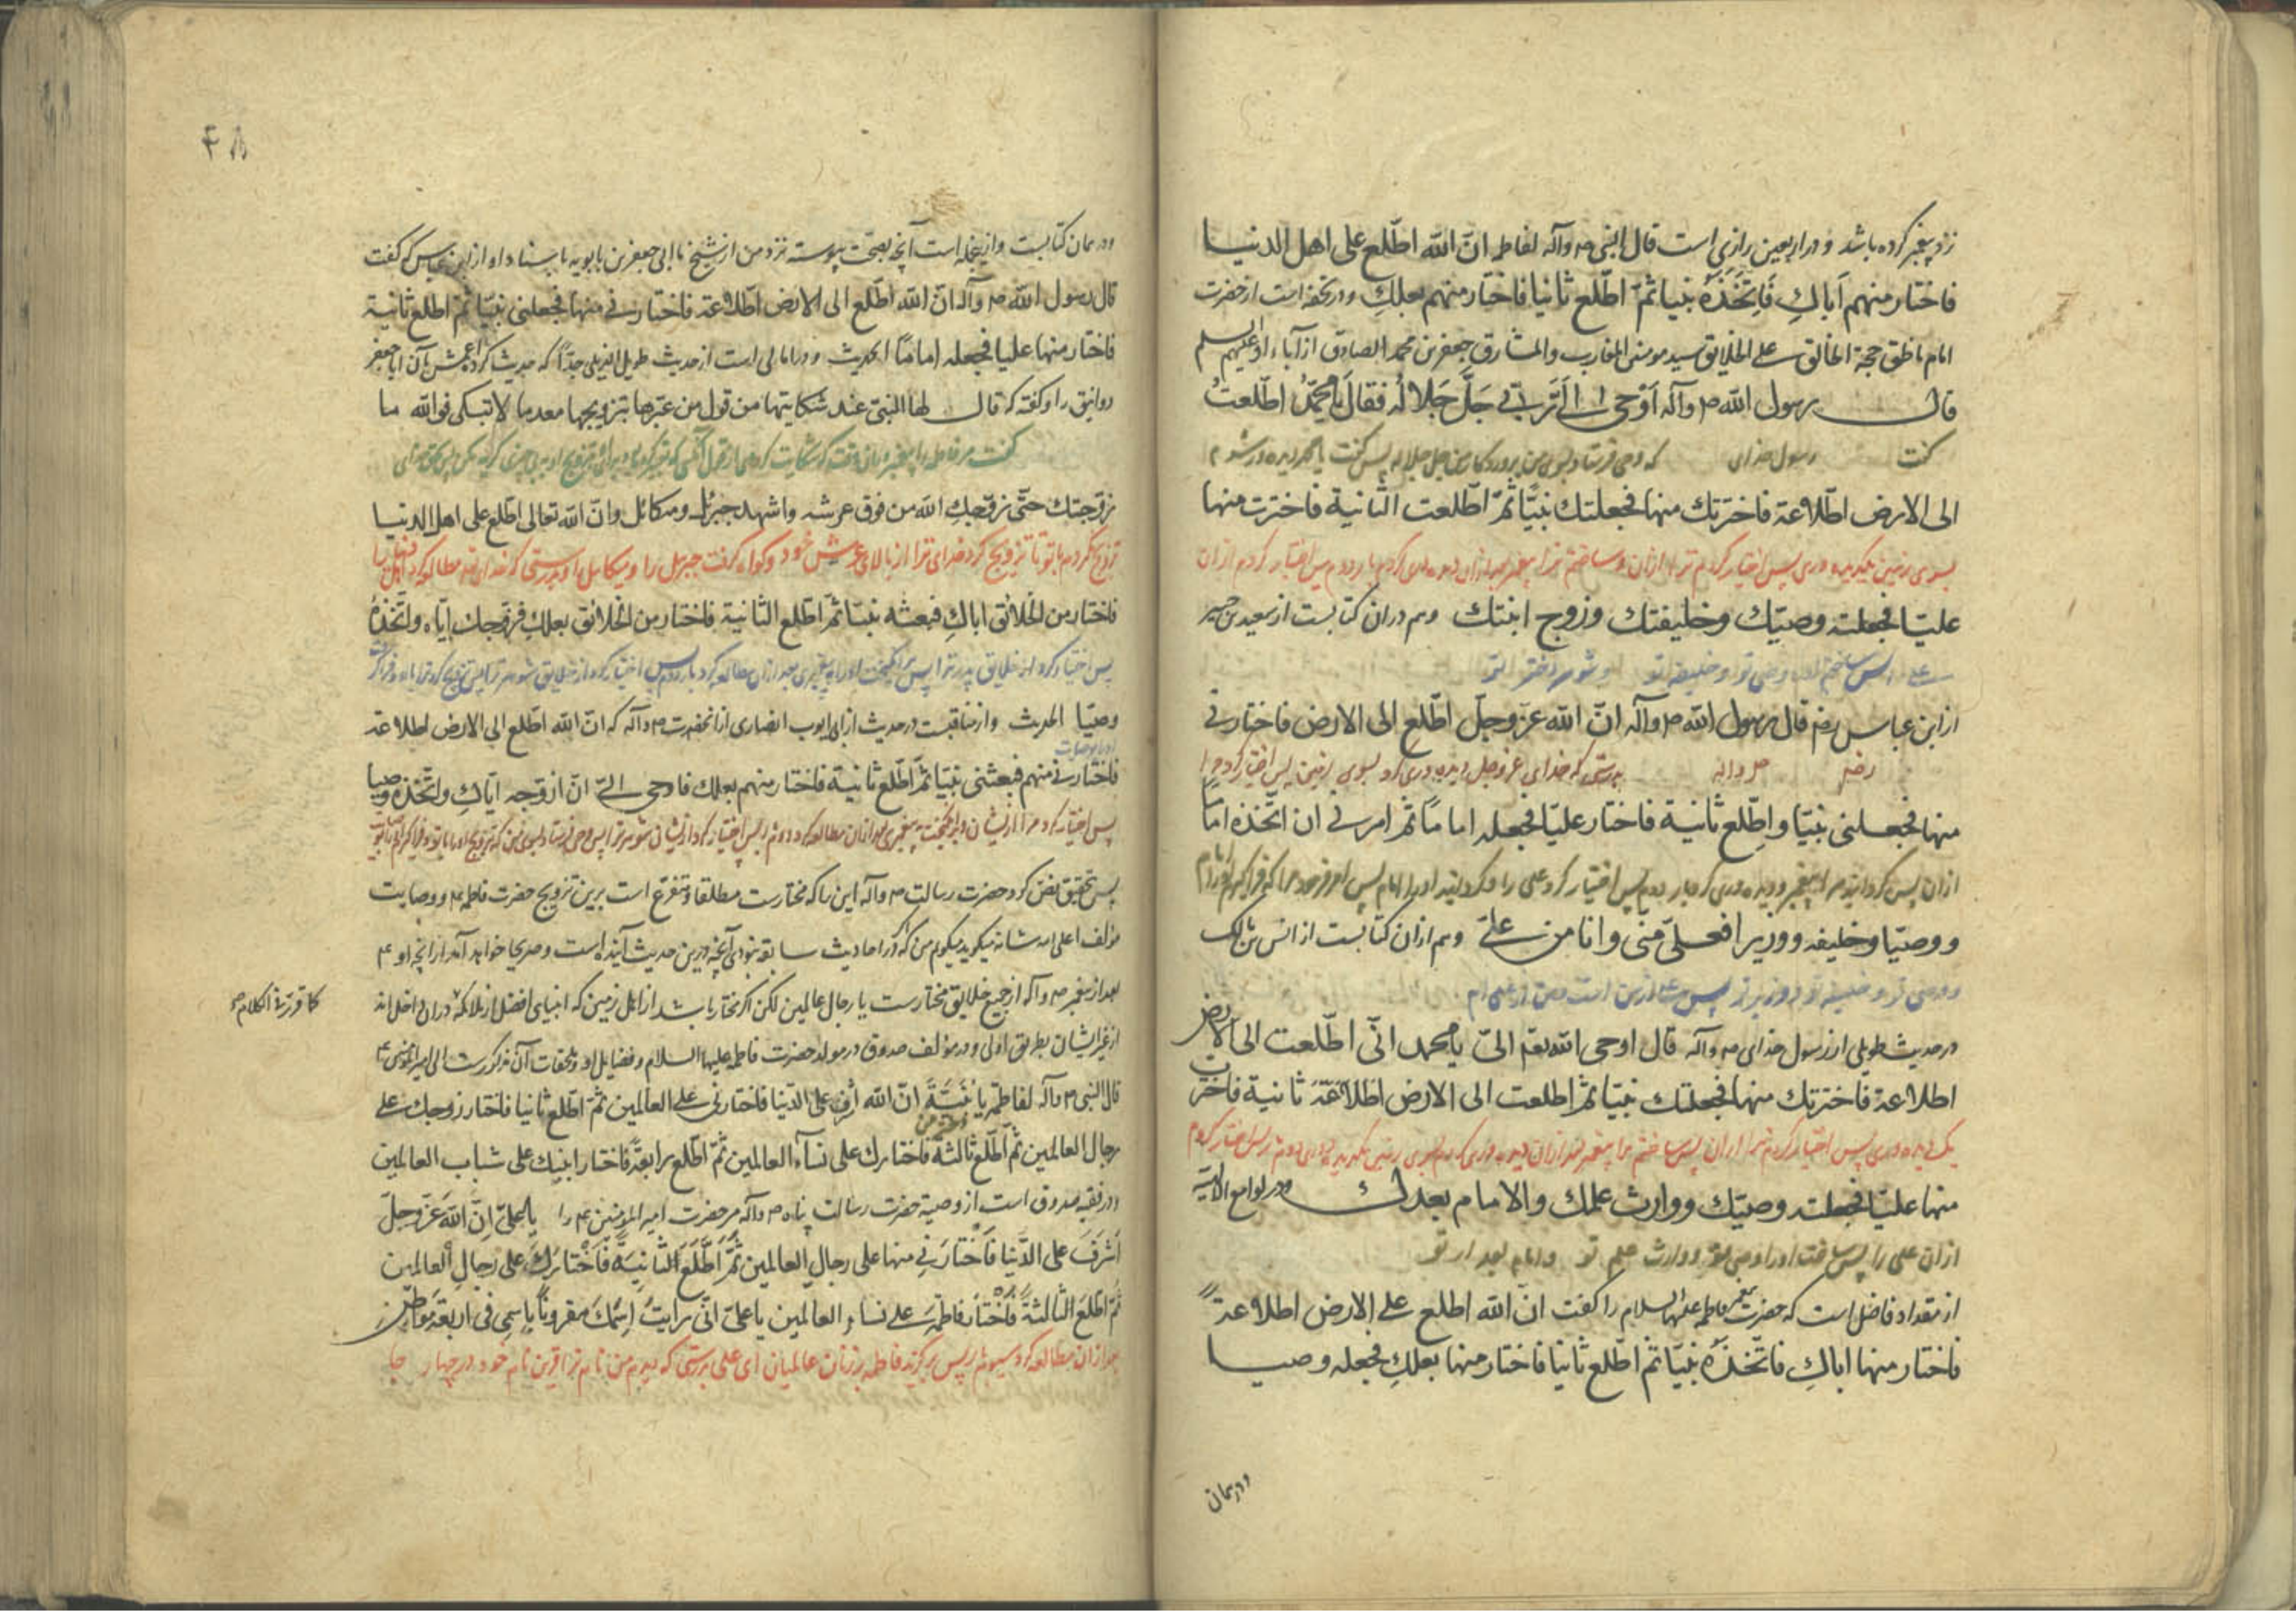 نزد پیغمبر کرده باشد و در اربعین رازی است قال النبی ص وآله لفاطمه انّ الله اطّلع علی اهل الدنیا
فاختار منهم اَباكِ فَاِتَّخَذَهُ نبیا ثمّ اطّلع ثانیا فاختار منهم بعلكِ و در تحفه است از حضرت
امام ناطق حجة الخالق علی الخلایق سید مومنی المغارب والمشارق جعفر بن محمد الصادق از آباء او علیهم السلم
قال رسول الله ص وآله اَوْحی اِلیَّ رَبّی جَلَّ جَلالُه فقالَ یا محمّدُ اطّلعتُ
گفت رسول خدای که وحی فرستاد بسوی من پروردگار من جل جلاله پس گفت یا محمد دیده ور شدم
الی الارض اطّلاعة فاخترتك منها فجعلتك نبیّا ثمّ اطّلعت الثانیة فاخترت منها
بسوی زمین پس اختیار کردم ترا از ان و ساختم ترا پیغمبر بعد از ان
علیّا فجعلته وصیّك وخلیفتك وزوج ابنتك وهم در ان کتابست از سعید بن جبیر
علی را پس ساختم او را وصی تو و خلیفه تو و شوهر دختر تو
از ابن عباس رض قال رسول الله ص وآله انّ الله عزّ وجلّ اطّلع الی الارض فاختارنی
رض ص واله بدرستی که خدای عز وجل دیده وری کرد بسوی زمین پس اختیار کرد مرا
منها فجعلنی نبیّا و اطّلع ثانیة فاختار علیّا فجعله اماماً ثمّ امرنی ان اتّخذه اماماً
از ان پس گردانید مرا پیغمبر و دیده وری کرد بار دوم پس اختیار کرد علی را و گردانید او را امام پس امر فرمود مرا که فرا گیرم او را امام
ووصیّا وخلیفه ووزیرا فعلیّ منی وانا من علیّ وهم از ان کتابست از انس بن مالك
و وصی و خلیفه و وزیر پس علی از من است و من از علی ام
در حدیث طویلی از رسول خدای ص وآله قال اوحی الله تع الیّ یا محمد انّی اطّلعت الی الارض
اطلاعة فاخترتك منها فجعلتك نبیّا ثمّ اطلعت الی الارض اطّلاعَةً ثانیة فاخترت
یک دیده وری پس اختیار کردم ترا از ان پس ساختم ترا پیغمبر بعد از ان
منها علیّا فجعلته وصیّك ووارث علمك والامام بعدك و در لوامع الالهیه
از ان علی را پس ساختم او را وصی تو و وارث علم تو و امام بعد از تو
از مقداد فاضل است که حضرت پیغمبر فاطمه علیها السلام را گفت انّ الله اطلع علی الارض اطلاعةً
فاختار منها اباكِ فاتّخذهُ نبیّا ثمّ اطّلع ثانیا فاختار منها بعلكِ فجعله وصیا
و در همان
۴۸
و در همان کتابست و از انجمله است آنچه بصحّت پیوسته نزد من از شیخ ما ابی جعفر بن بابویه باسناد او از ابن عباس که گفت
قال رسول الله ص وآله انّ الله اطّلع الی الارض اطّلاعة فاختارنی منها فجعلنی نبیّا ثمّ اطلع ثانیة
فاختار منها علیا فجعله اماماً الحدیث و در امالی است از حدیث طویل الذیلی جدّا که حدیث کرده اعمش بآن ابا جعفر
دوانیق را و گفته که قال لها النبیّ عند شکایتها من قول من عیّرها بتزویجها معدما لا تبکی فوالله ما
گفت مر فاطمه را پیغمبر در ان وقت که شکایت کرد
زوّجتك حتّی زوّجكِ الله من فوق عرشه واشهد جبرئیل ومیکائل وانّ الله تعالی اطّلع علی اهل الدنیا
تزویج نکردم با تو تا تزویج کرد خدای ترا از بالای عرش خود و گواه گرفت جبرئیل را و میکائیل را و بدرستی که خدای مطالعه کرد
فاختار من الخلائق اباكِ فبعثه نبیّا ثمّ اطّلع الثانیة فاختار من الخلائق بعلكِ فزوّجك ایّاه واتّخذهُ
پس اختیار کرد از خلایق پدر ترا پس برانگیخت او را به پیغمبری بعد از ان مطالعه کرد بار دوم پس اختیار کرد از خلایق شوهر ترا پس تزویج کرد ترا باو و فرا گرفت
وصیّا الحدیث و از مناقبت در حدیث از ابی ایوب انصاری از انحضرت ص وآله که انّ الله اطّلع الی الارض اطلاعة
فاختارنی منهم فبعثنی نبیّا ثمّ اطّلع ثانیة فاختار منهم بعلك فاوحی الیّ انّ ازوّجه ایّاكِ واتّخذه وصیا
پس اختیار کرد مرا از ایشان و برانگیخت به پیغمبری بعد از ان مطالعه کرد دوم پس اختیار کرد از ایشان شوهر ترا پس وحی فرستاد بسوی من که تزویج
پس تحقیق نص کرد حضرت رسالت ص وآله این را که مختارست مطلقا و متفرع است برین تزویج حضرت فاطمه ع و وصایت
مؤلف اعلی الله شانه میگوید میگویم من که در احادیث سابقه نبودی آنچه درین حدیث آینده است و صریحا خواهد آمد از آنچه او ع
بعد از پیغمبر ص وآله از جمیع خلایق مختارست یا رجال عالمین لکن اگر مختار باشد از اهل زمین که انبیای افضل از ملائکه در ان داخل اند
از غیر ایشان بطریق اولی و در مؤلف صدوق در مولد حضرت فاطمه علیها السلام و فضایل او و ملحقات آن مذکورست الی امیر المؤمنین ع
کما قررنه الکلام
قال النبی ص وآله لفاطمة یا بُنَیَّةَ انّ الله اشرف علی الدّنیا فاختارنی علی العالمین ثمّ اطّلع ثانیا فاختار زوجك علی
رجال العالمین ثمّ اطّلع ثالثة فاختارك علی نسآء العالمین ثمّ اطّلع رابعةً فاختار ابنیك علی شباب العالمین
و در فقیه صدوق است از وصیة حضرت رسالت پناه ص وآله مر حضرت امیر المؤمنین ع را یا علیّ اِنّ اللهَ عَزّ وجلّ
اَشْرَفَ علی الدّنیا فَاخْتارَنی منها علی رجالِ العالمین ثُمَّ اَطَّلَعَ الثّانِیَةَ فَاخْتارَكَ علی رجالِ العالمین
ثمّ اطّلعَ الثّالثةَ فَاخْتارَ فاطمةَ علی نساءِ العالمین یا علیّ انّی رایتُ اِسْمَكَ مقرونًا باِسمی فی اربعةِ مَواطِنَ
بعد از ان مطالعه کرد سیوم بار پس برگزید فاطمه بر زنان عالمیان ای علی بدرستی که دیدم من نام ترا قرین نام خود در چهار جا